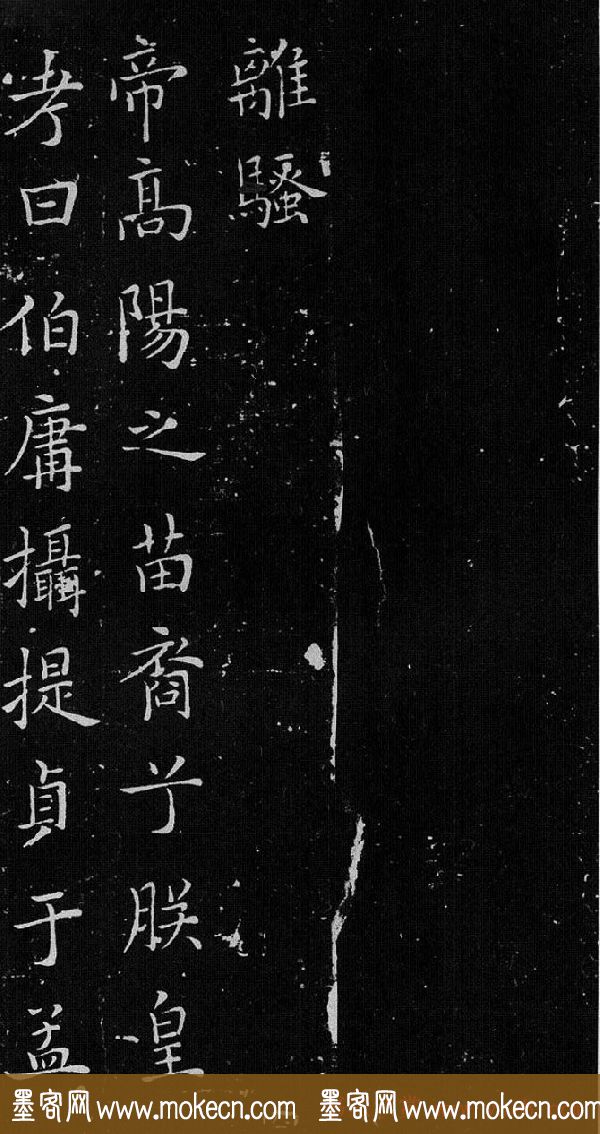 離騷
帝高陽之苗裔兮朕皇
考曰伯庸攝提貞于孟
墨客网 www.mokecn.com 墨客网 www.mokecn.com